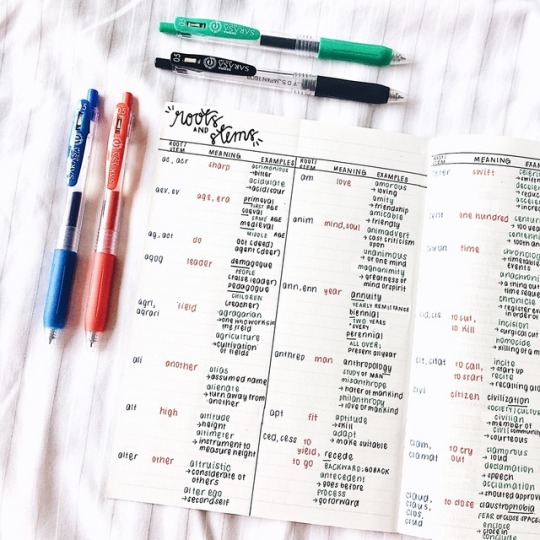 SARASA
0.5 SARASA
SARASA
SARASA
roots
AND
stems
ROOT/
STEM
MEANING
EXAMPLES
ac, acr
sharp
acrimonious
→ bitter
acidulate
→ acid/sour
aev, ev
age, era
primeval
FIRST AGE
coeval
SAME AGE
medieval
MIDDLE AGE
ag, act
do
act (deed)
agent (doer)
agog
leader
demagogue
PEOPLE
(false leader)
pedagogue
CHILDREN
(teacher)
agri,
agrari
field
agrarian
→ one who works in
the field
agriculture
→ cultivation
of fields
ali
another
alias
→ assumed name
alienate
→ turn away from
another
alt
high
altitude
→ height
altimeter
→ instrument to
measure height
alter
other
altruistic
→ considerate of
others
alter ego
→ second self
ROOT/
STEM
MEANING
EXAMPLES
am
love
amorous
→ loving
amity
→ friendship
amicable
→ friendly
anim
mind, soul
animadvert
→ cast criticism
upon
unanimous
→ of one mind
magnanimity
→ greatness of
mind or spirit
ann, enn
year
annuity
YEARLY REMITTANCE
biennial
→ TWO YEARS
EVERY
perennial
ALL OVER;
present all year
anthrop
man
anthropology
STUDY OF MAN
misanthrope
→ hater of mankind
philanthropy
→ love of mankind
apt
fit
aptitude
→ skill
adapt
→ make suitable
ced, cess
to
yield,
to go
recede
BACKWARD: GO BACK
antecedent
→ goes before
process
→ go forward
ROOT/
STEM
MEANING
swift
cent
one hundred
time
to cut,
to kill
incision
→ surgical
homicide
→ killing of a
cit, citat
to call,
to start
incite
recite
civil
citizen
civilization
civilian
→ member of
→ courteous
clam,
clamat
to cry
out
clamorous
→ loud
acclamation
→ speech
→ shouted
claud,
claus,
clos,
clud
to close
claustrophobia
FEAR OF CLOSE SPACES
enclose
→ close in
conclude